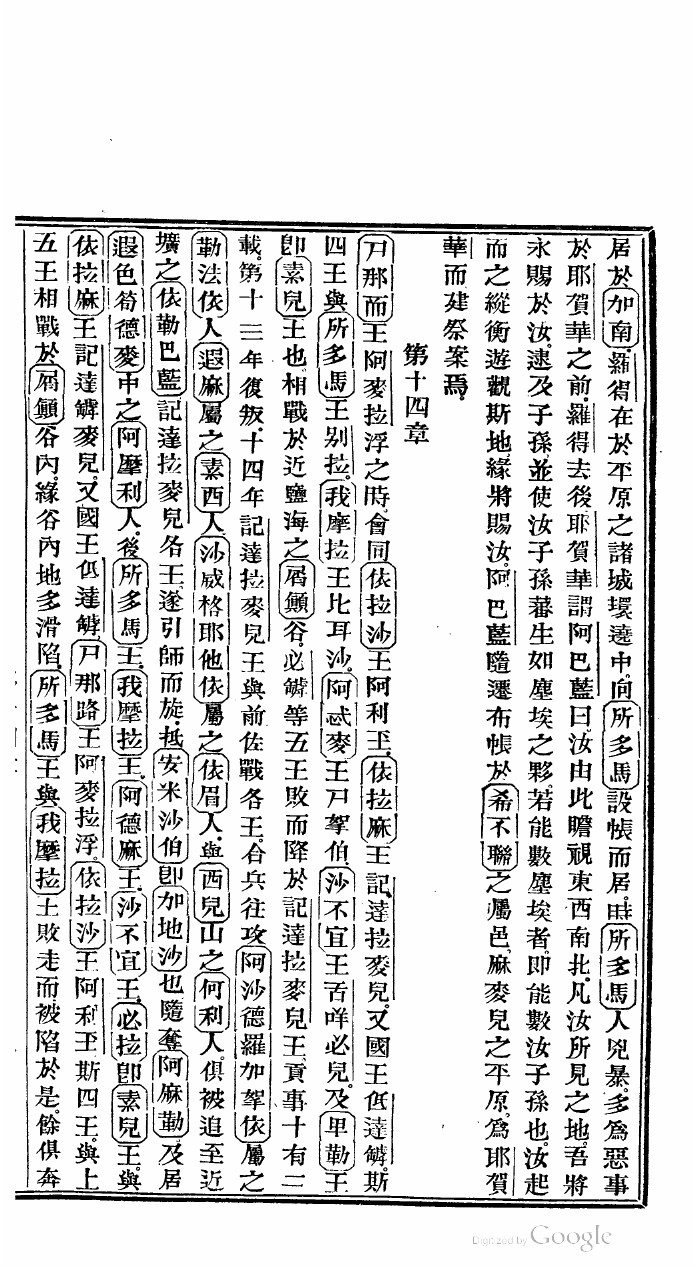 居於加南。羅得在於平原之諸城環遶中。向所多馬設帳而居。時所多馬人兇暴。多爲惡事
於耶賀華之前。羅得去後。耶賀華謂阿巴藍曰。汝由此瞻視東西南北。凡汝所見之地。吾將
永賜於汝。速及子孫。並使汝子孫蕃生如塵埃之夥。若能數塵埃者。即能數汝子孫也。汝起
而之縱衡遊觀斯地。緣將賜汝。阿巴藍隨遷布帳於希不聯之屬邑。麻麥兒之平原。爲耶賀
華而建祭案焉。
第十四章
尸那而王阿麥拉浮之時。會同依拉沙王阿利王。依拉麻王記達拉麥兒。又國王低達鱗。斯
四王與所多馬王別拉。我摩拉王比耳沙。阿忒麥王尸挐伯。沙不宜王舌咩必兒。及里勒王
即素兒王也。相戰於近鹽海之屑顚谷。必鱗等五王敗而降於記達拉麥兒王。貢事十有二
載。第十三年復叛。十四年記達拉麥兒王與前佐戰各王。合兵往攻阿沙德羅加挐依屬之
勒法依人。遐麻屬之素西人。沙威格耶他依屬之依眉人。與西兒山之何利人。俱被追至近
壙之依勒巴藍。記達拉麥兒各王。遂引師而旋。抵安米沙伯即加地沙也。隨奪阿麻勒。及居
遐色筍德麥中之阿摩利人。後所多馬王。我摩拉王。阿德麻王。沙不宜王。必拉即素兒王。與
依拉麻王記達鱗麥兒。又國王低達鱗。尸那路王阿麥拉浮。依拉沙王阿利王。斯四王。與上
五王相戰於屑顚谷內。緣谷內地多滑陷。所多馬王與我摩拉王敗走而被陷於是。餘俱奔
Digitized by Google